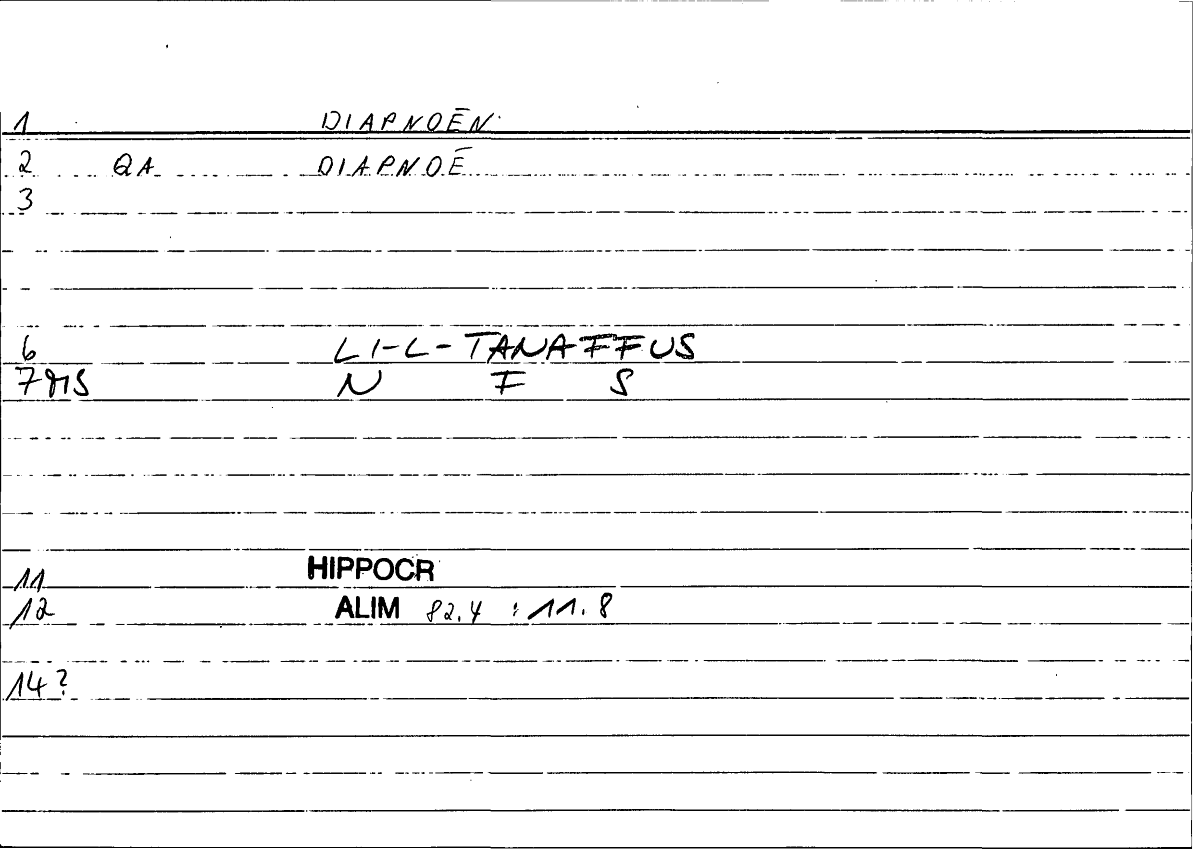 1 DIAPNOĒN
2 QA DIAPNOĒ
3
6 LI-L-TANAFFUS
7 MS N F S
11 HIPPOCR
12 ALIM 82.4 : 11.8
14?